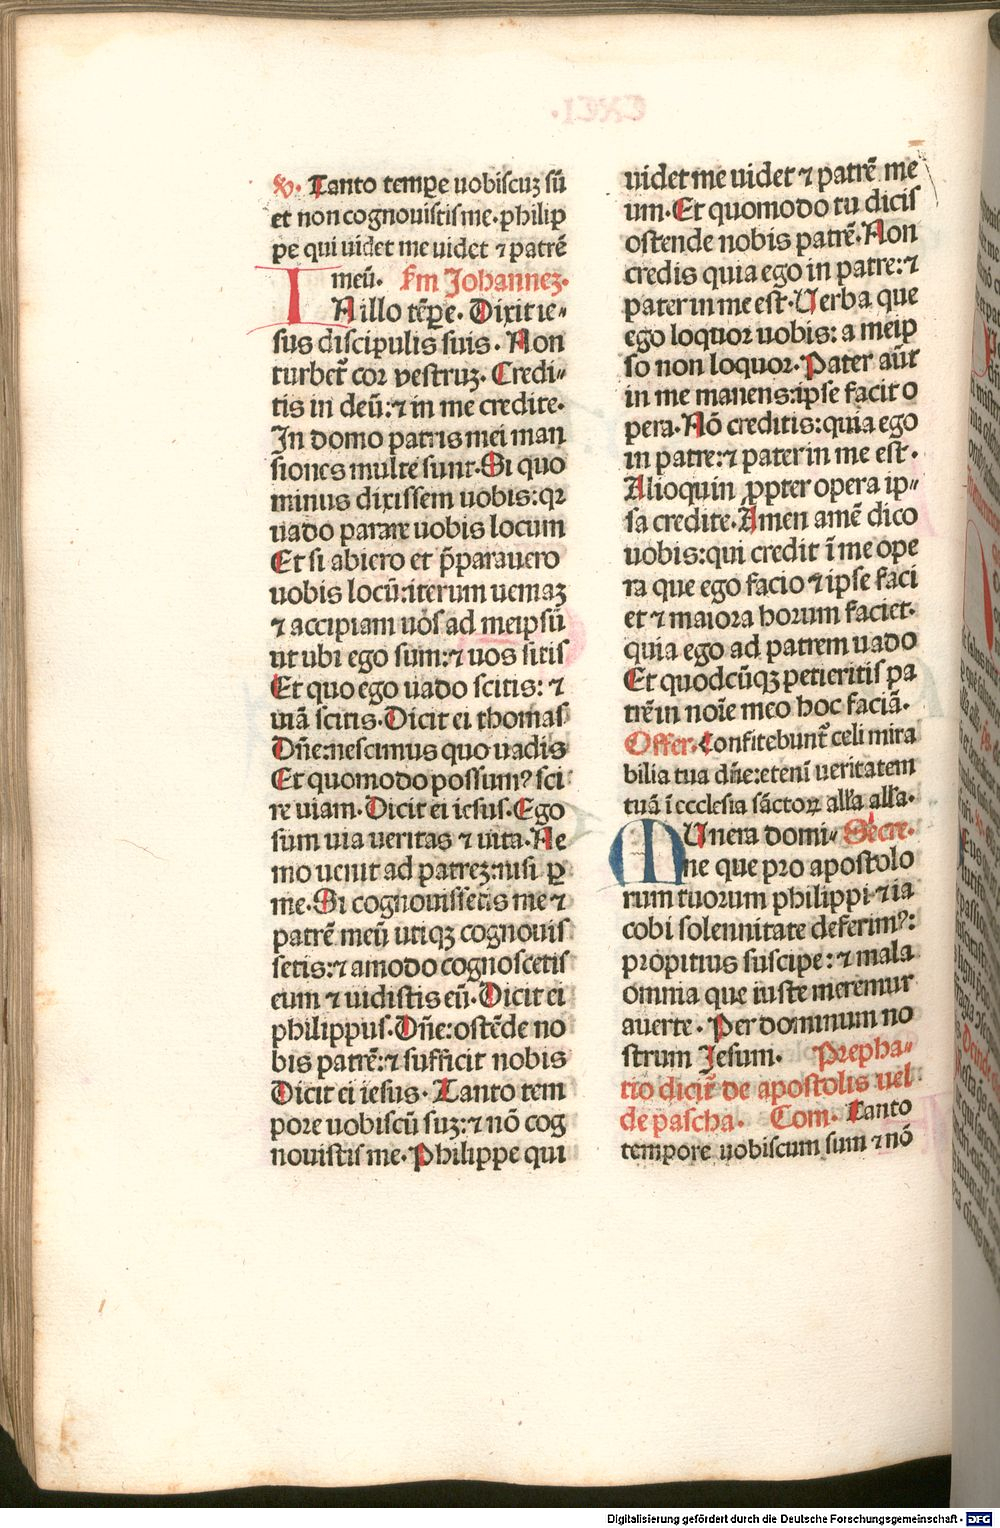 v. Tanto tempe uobiscuꝫ sū
et non cognouistis me. philip
pe qui uidet me uidet ⁊ patrē
meū. Sm Johannez.
IN illo tēꝑe. Dixit ie⸗
sus discipulis suis. Non
turbet̄ cor vestruꝫ. Credi⸗
tis in deū: ⁊ in me credite.
In domo patris mei man
siones multe sunt. Si quo
minus dixissem uobis: qꝛ
uado parare uobis locum
Et si abiero et p̄parauero
uobis locū: iterum ueniaꝫ
⁊ accipiam uos ad meipsū
ut ubi ego sum: ⁊ uos sitis
Et quo ego uado scitis: ⁊
uiā scitis. Dicit ei thomas
Dn̄e: nescimus quo uadis
Et quomodo possumꝰ sci
re uiam. Dicit ei iesus. Ego
sum uia ueritas ⁊ uita. Ne
mo uenit ad patrez: nisi ꝑ
me. Si cognouissetis me ⁊
patrē meū utiqꝫ cognouis
setis: ⁊ amodo cognoscetis
eum ⁊ uidistis eū. Dicit ei
philippus. Dn̄e: ostēde no
bis patrē: ⁊ sufficit nobis
Dicit ei iesus. Tanto tem
pore uobiscū suꝫ: ⁊ nō cog
nouistis me. Philippe qui
uidet me uidet ⁊ patrē me
um. Et quomodo tu dicis
ostende nobis patrē. Non
credis quia ego in patre: ⁊
pater in me est. Uerba que
ego loquor uobis: a meip
so non loquor. Pater aūt
in me manens: ipse facit o
pera. Nō creditis: quia ego
in patre: ⁊ pater in me est.
Alioquin ꝓpter opera ip⸗
sa credite. Amen amē dico
uobis: qui credit ī me ope
ra que ego facio ⁊ ipse faci
et ⁊ maiora horum faciet.
quia ego ad patrem uado
Et quodcūqꝫ petieritis pa
trē in noīe meo hoc faciā.
Offer. Confitebunt̄ celi mira
bilia tua dn̄e: etenī ueritatem
tuā ī ecclesia sāctoꝝ alla alla.
MUnera domi⸗ Secre.
ne que pro apostolo
rum tuorum philippi ⁊ ia
cobi solennitate deferimꝰ:
propitius suscipe: ⁊ mala
omnia que iuste meremur
auerte. Per dominum no
strum Jesum. Prepha⸗
tio dicit̄ de apostolis uel
de pascha. Com. Tanto
tempore uobiscum sum ⁊ nō
Digitalisierung gefördert durch die Deutsche Forschungsgemeinschaft - DFG